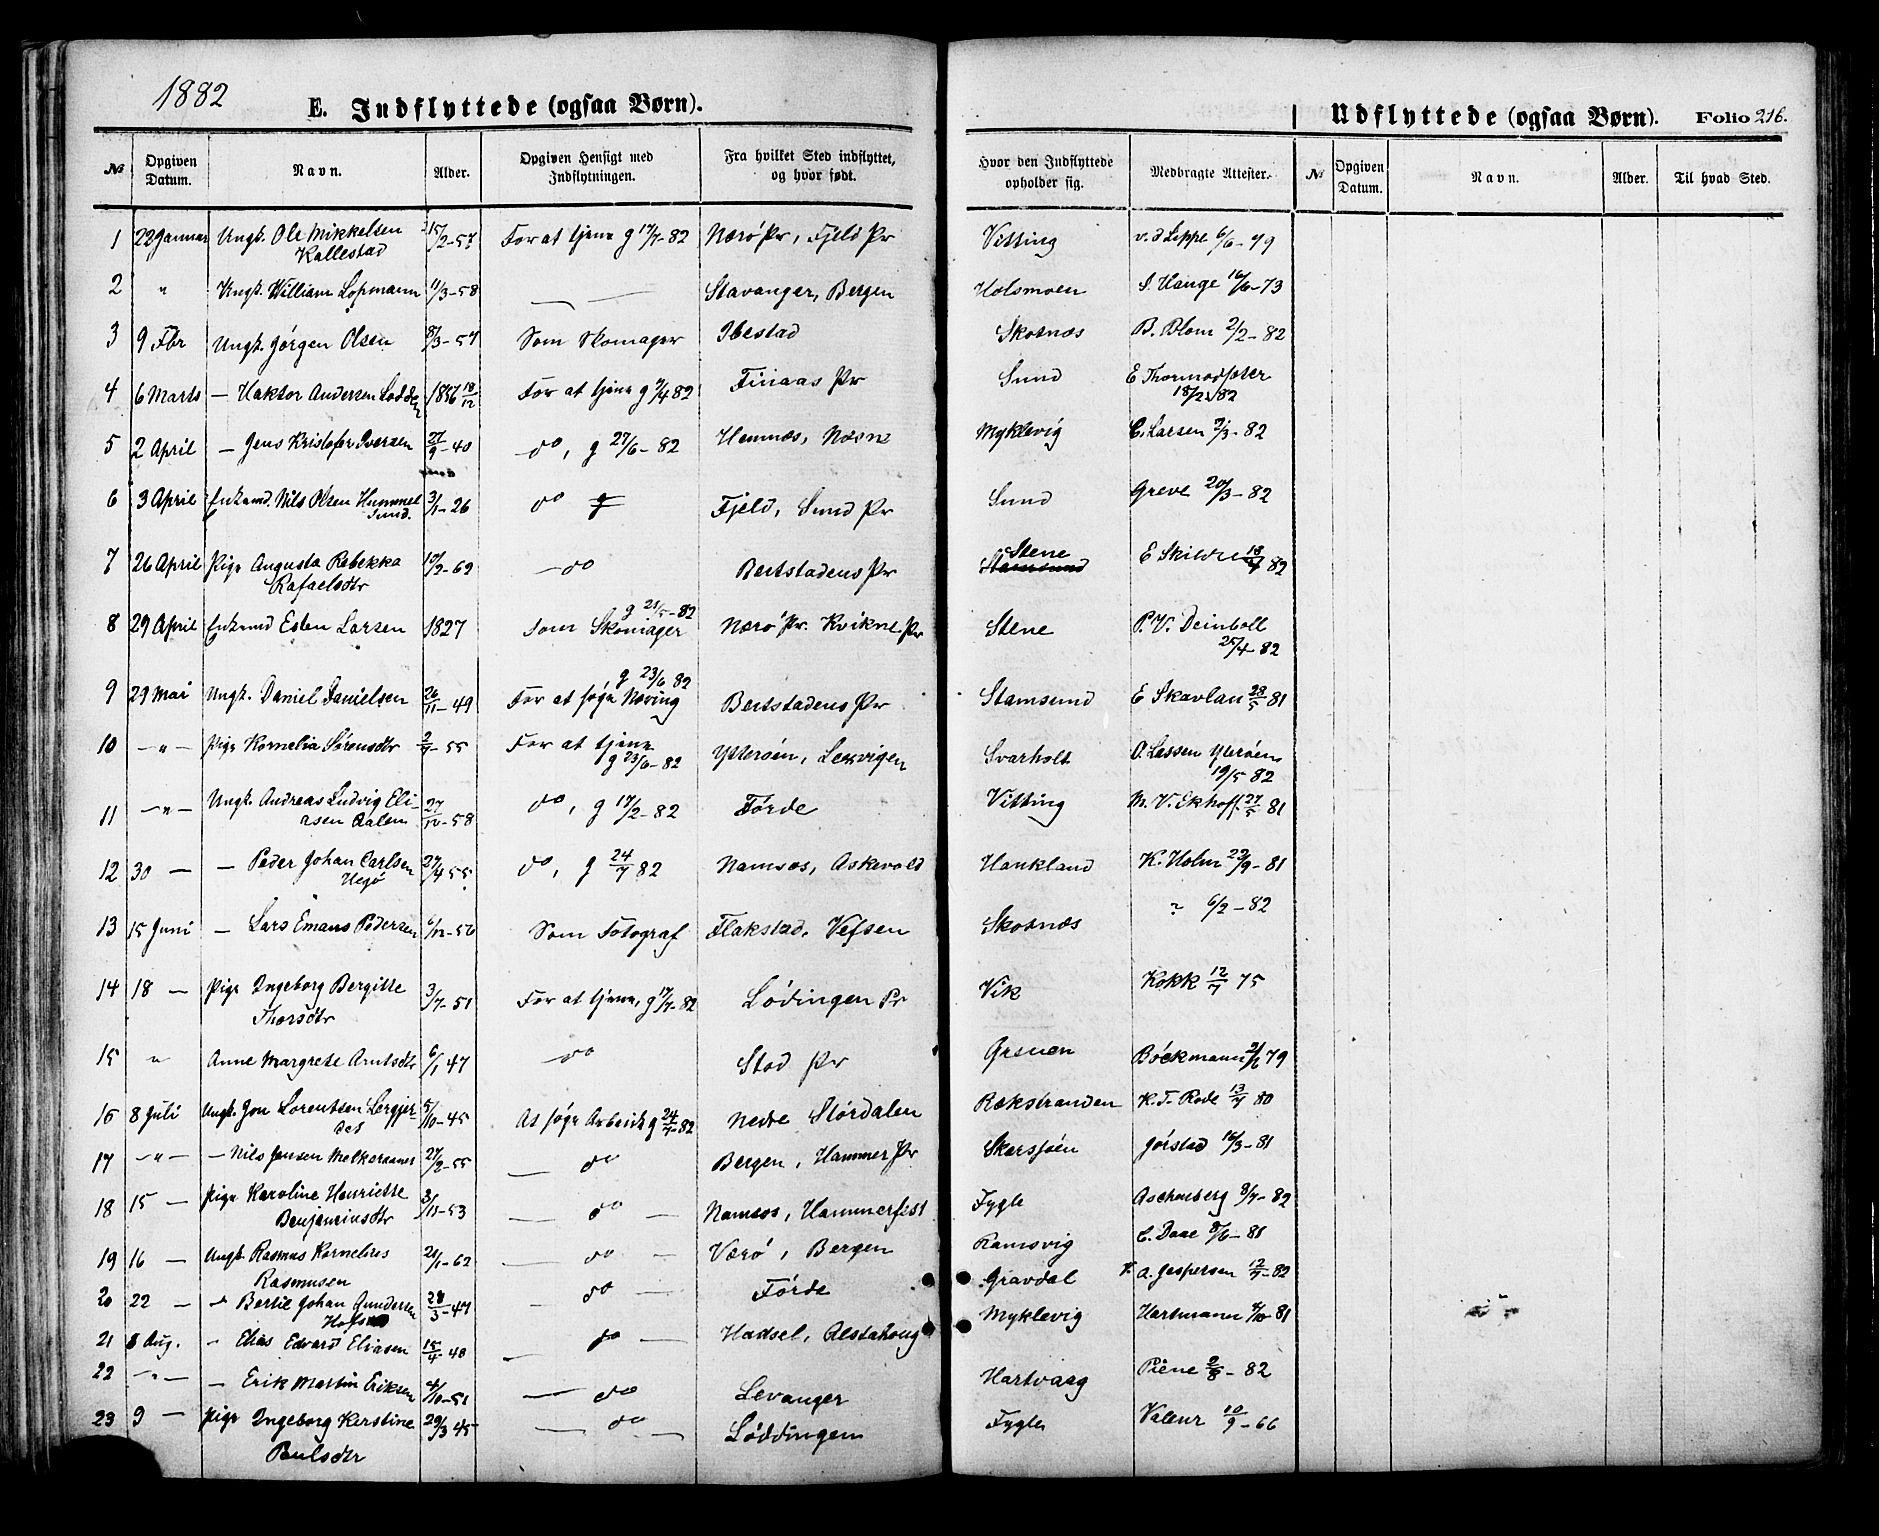 1882
E. Indflyttede (ogsaa Børn).
Udflyttede (ogsaa Børn). Folio 216.
№ Opgiven Datum. Navn. Alder. Opgiven Hensigt med Indflytningen. Fra hvilket Sted indflyttet, og hvor født. Hvor den Indflyttede opholder sig. Medbragte Attester. № Opgiven Datum. Navn. Alder. Til hvad Sted.
1 22 Januar Ungk. Ole Mikkelsen 15/2-57 For at tjene g 17/7-82 Nærö Pr, Fjeld Pr Vitting v. d Lippe 6/6-79
Kallestad
2 " Ungk. William Lopmann 11/3-58 — — Stavanger, Bergen Holsmoen S. Hauge 16/6-73
3 9 Fbr Ungk. Jörgen Olsen 8/3-57 Som Skomager Ibestad Skotnæs B. Blom 2/2-82
4 6 Marts — Haktor Andersen Lodden 1856 18/12 For at tjene g 9/4 82 Finaas Pr Sund E Thormodsæter
18/2 82
5 2 April — Jens Kristofer Iversen 27/9-40 do, g 27/6-82 Hemnæs, Næsne Myklevig C. Larsen 7/3-82
6 3 April Enkemd. Nils Olsen Hummel 3/1-26 do g Fjeld, Sund Pr Sund Greve 20/3-82
Sund.
7 26 April Pige Augusta Rebekka 10/2-62 — do Beitstadens Pr Stene E Skilde 18/4 82
Rafaelsdtr Stamsund
g 21/5-82
8 29 April Enkemd Esten Larsen 1827 som Skomager Nærö Pr. Kvikne Pr Stene P. V. Deinboll
25/4-82
g 23/6 82
9 29 Mai Ungk. Daniel Danielsen 26/11-49 For at søge Næring Beitstadens Pr Stamsund E Skavlan 28/5 81
10 — " — Pige Kornelia Sörensdtr 2/7-55 For at tjene Ytterøen, Lexvigen Svarholt O. Lassen Yterøen
g 23/6-82 19/5 82
11 — " — Ungk. Andreas Ludvig Eli- 27/12-58 do, g 17/2-82 Førde Vitting M. V. Ekhoff 27/5 81
asen Aalen
12 30 — — Peder Johan Carlsen 27/4 55 do, g 24/7 82 Namsos, Askevold Haukland K. Holm 29/9-81
13 15 Juni — Lars Emans Pedersen 6/12-56 Som Fotograf Flakstad, Vefsen Skotnæs " 6/2-82
14 18 — Pige Ingeborg Bergitte 3/7-51 For at tjene, g 17/7-82 Lödingen Pr Vik Kokk 12/7 75
Thorsdtr
15 " Anne Margrete Arntsdtr 6/1 47 — do Stod Pr Grenen Böckmann 21/6 79
16 8 Juli Ungk. Jon Lorentsen Lergjer- 5/10-45 At søge Arbeide g 24/7-82 Nedre Stördalen Rækstranden K. F. Rode 13/7 80
det
17 — " — — Nils Jensen Melkeraaner 27/2-55 — do Bergen, Hammer Pr Skarsjøen Jörstad 16/3-81
18 15 — Pige Karoline Henriette 3/11-53 — do — Namsos, Hammerfest Fygle Aschenberg 8/7-82
Benjaminsdtr
19 16 — Ungk. Rasmus Kornelius 21/1-62 — do — Værö, Bergen Ramsvig C. Daae 8/6-81
Rasmusen
20 22 — " Bertil Johan Gundersen 28/3-47 — do — Förde Gravdal A. Jespersen 12/7-82
21 8 Aug. " Elias Edvard Eliasen 15/4-40 — do — Hadsel, Alstahoug Myklevig Hartmann 4/10 81
22 — " — — Erik Martin Eriksen 4/10-51 — do Levanger Hartvaag Piene 2/8-82
23 9 — Pige Ingeborg Kerstine 29/3 45 — do — Løddingen Fygle Valeur 10/9-66
Paulsdtr